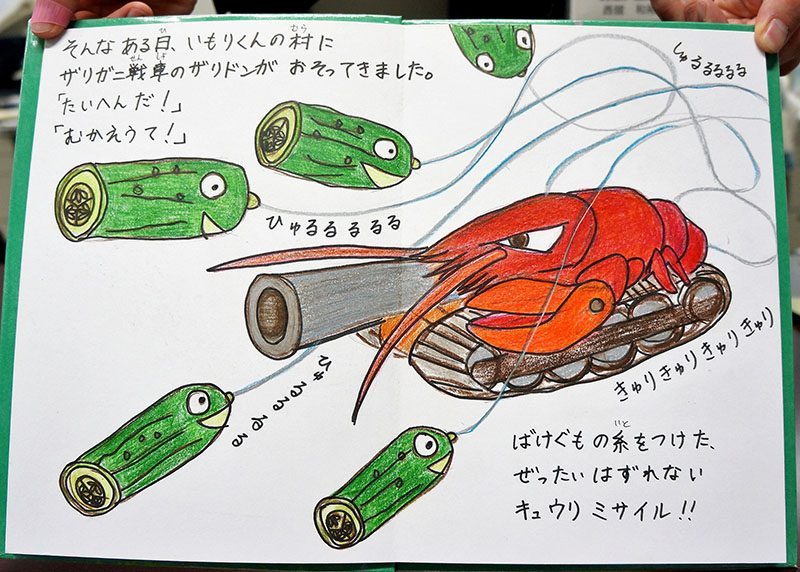 ひ むら
そんなある日、いもりくんの村に
せんしゃ
ザリガニ戦車のザリドンが おそってきました。
「たいへんだ!」
「むかえうて!」
しゅるるるるる
ひゅるるるるる
ひゅるるるるる
きゅりきゅりきゅりきゅり
いと
ばけぐもの糸をつけた、
ぜったいはずれない
キュウリミサイル!!